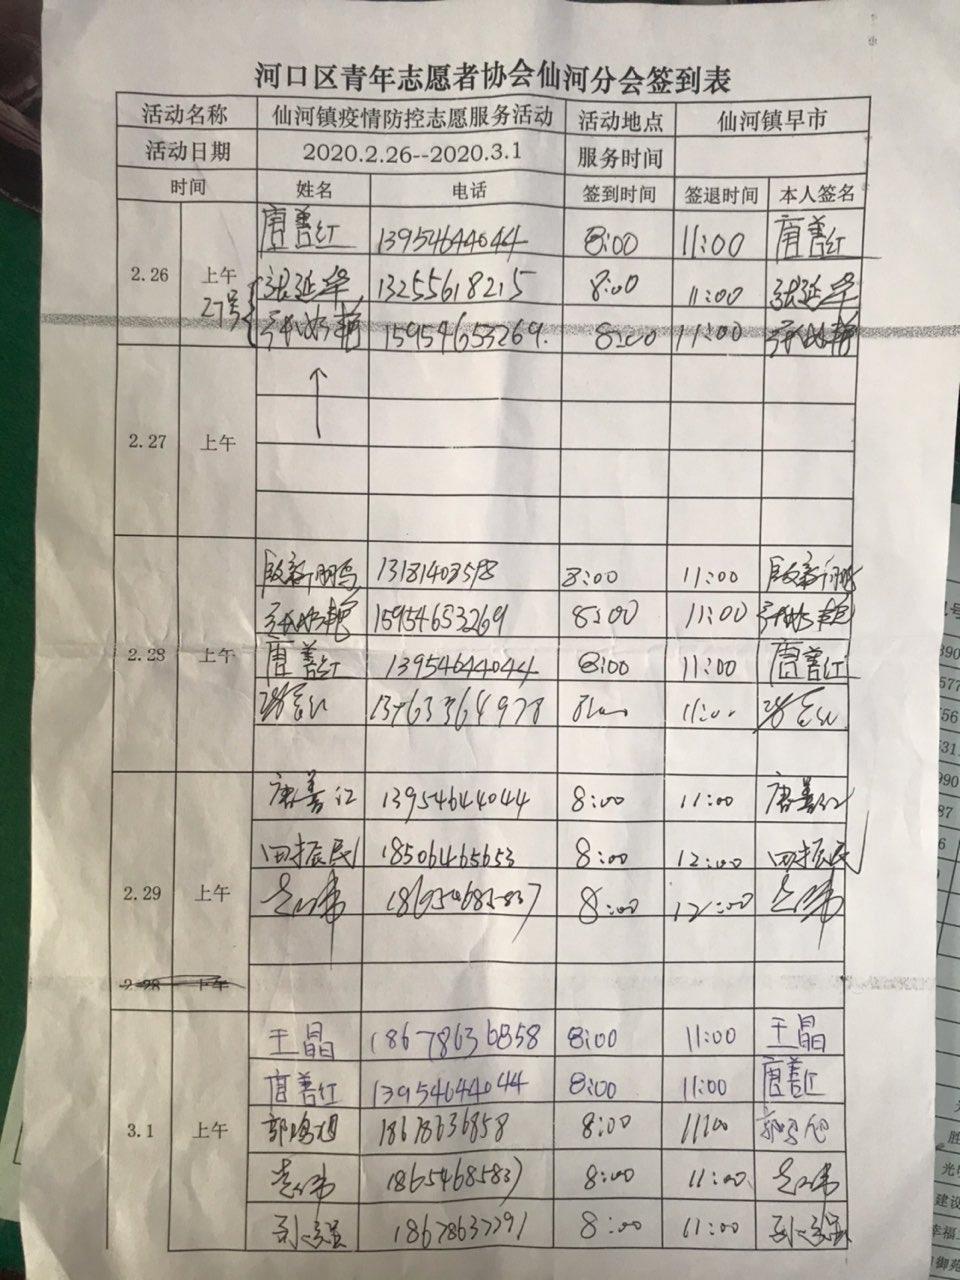 河口区青年志愿者协会仙河分会签到表
活动名称 仙河镇疫情防控志愿服务活动 活动地点 仙河镇早市
活动日期 2020.2.26--2020.3.1 服务时间
时间 姓名 电话 签到时间 签退时间 本人签名
唐善红 13954644044 8:00 11:00 唐善红
2.26 上午 张延华 13255618215 8:00 11:00 张延华
27号 15954653269. 8:00 11:00
2.27 上午
段新鹏 13181403518 8:00 11:00 段新鹏
15954653269 8:00 11:00
2.28 上午 唐善红 13954644044 8:00 11:00 唐善红
8:00 11:00
唐善红 13954644044 8:00 11:00 唐善红
田振民 18506465653 8:00 12:00 田振民
2.29 上午 8:00 12:00
2.28 上午
王晶 18678636858 8:00 11:00 王晶
唐善红 13954644044 8:00 11:00 唐善红
3.1 上午 18678636858 8:00 11:00
18654685837 8:00 11:00
18678637291 8:00 11:00